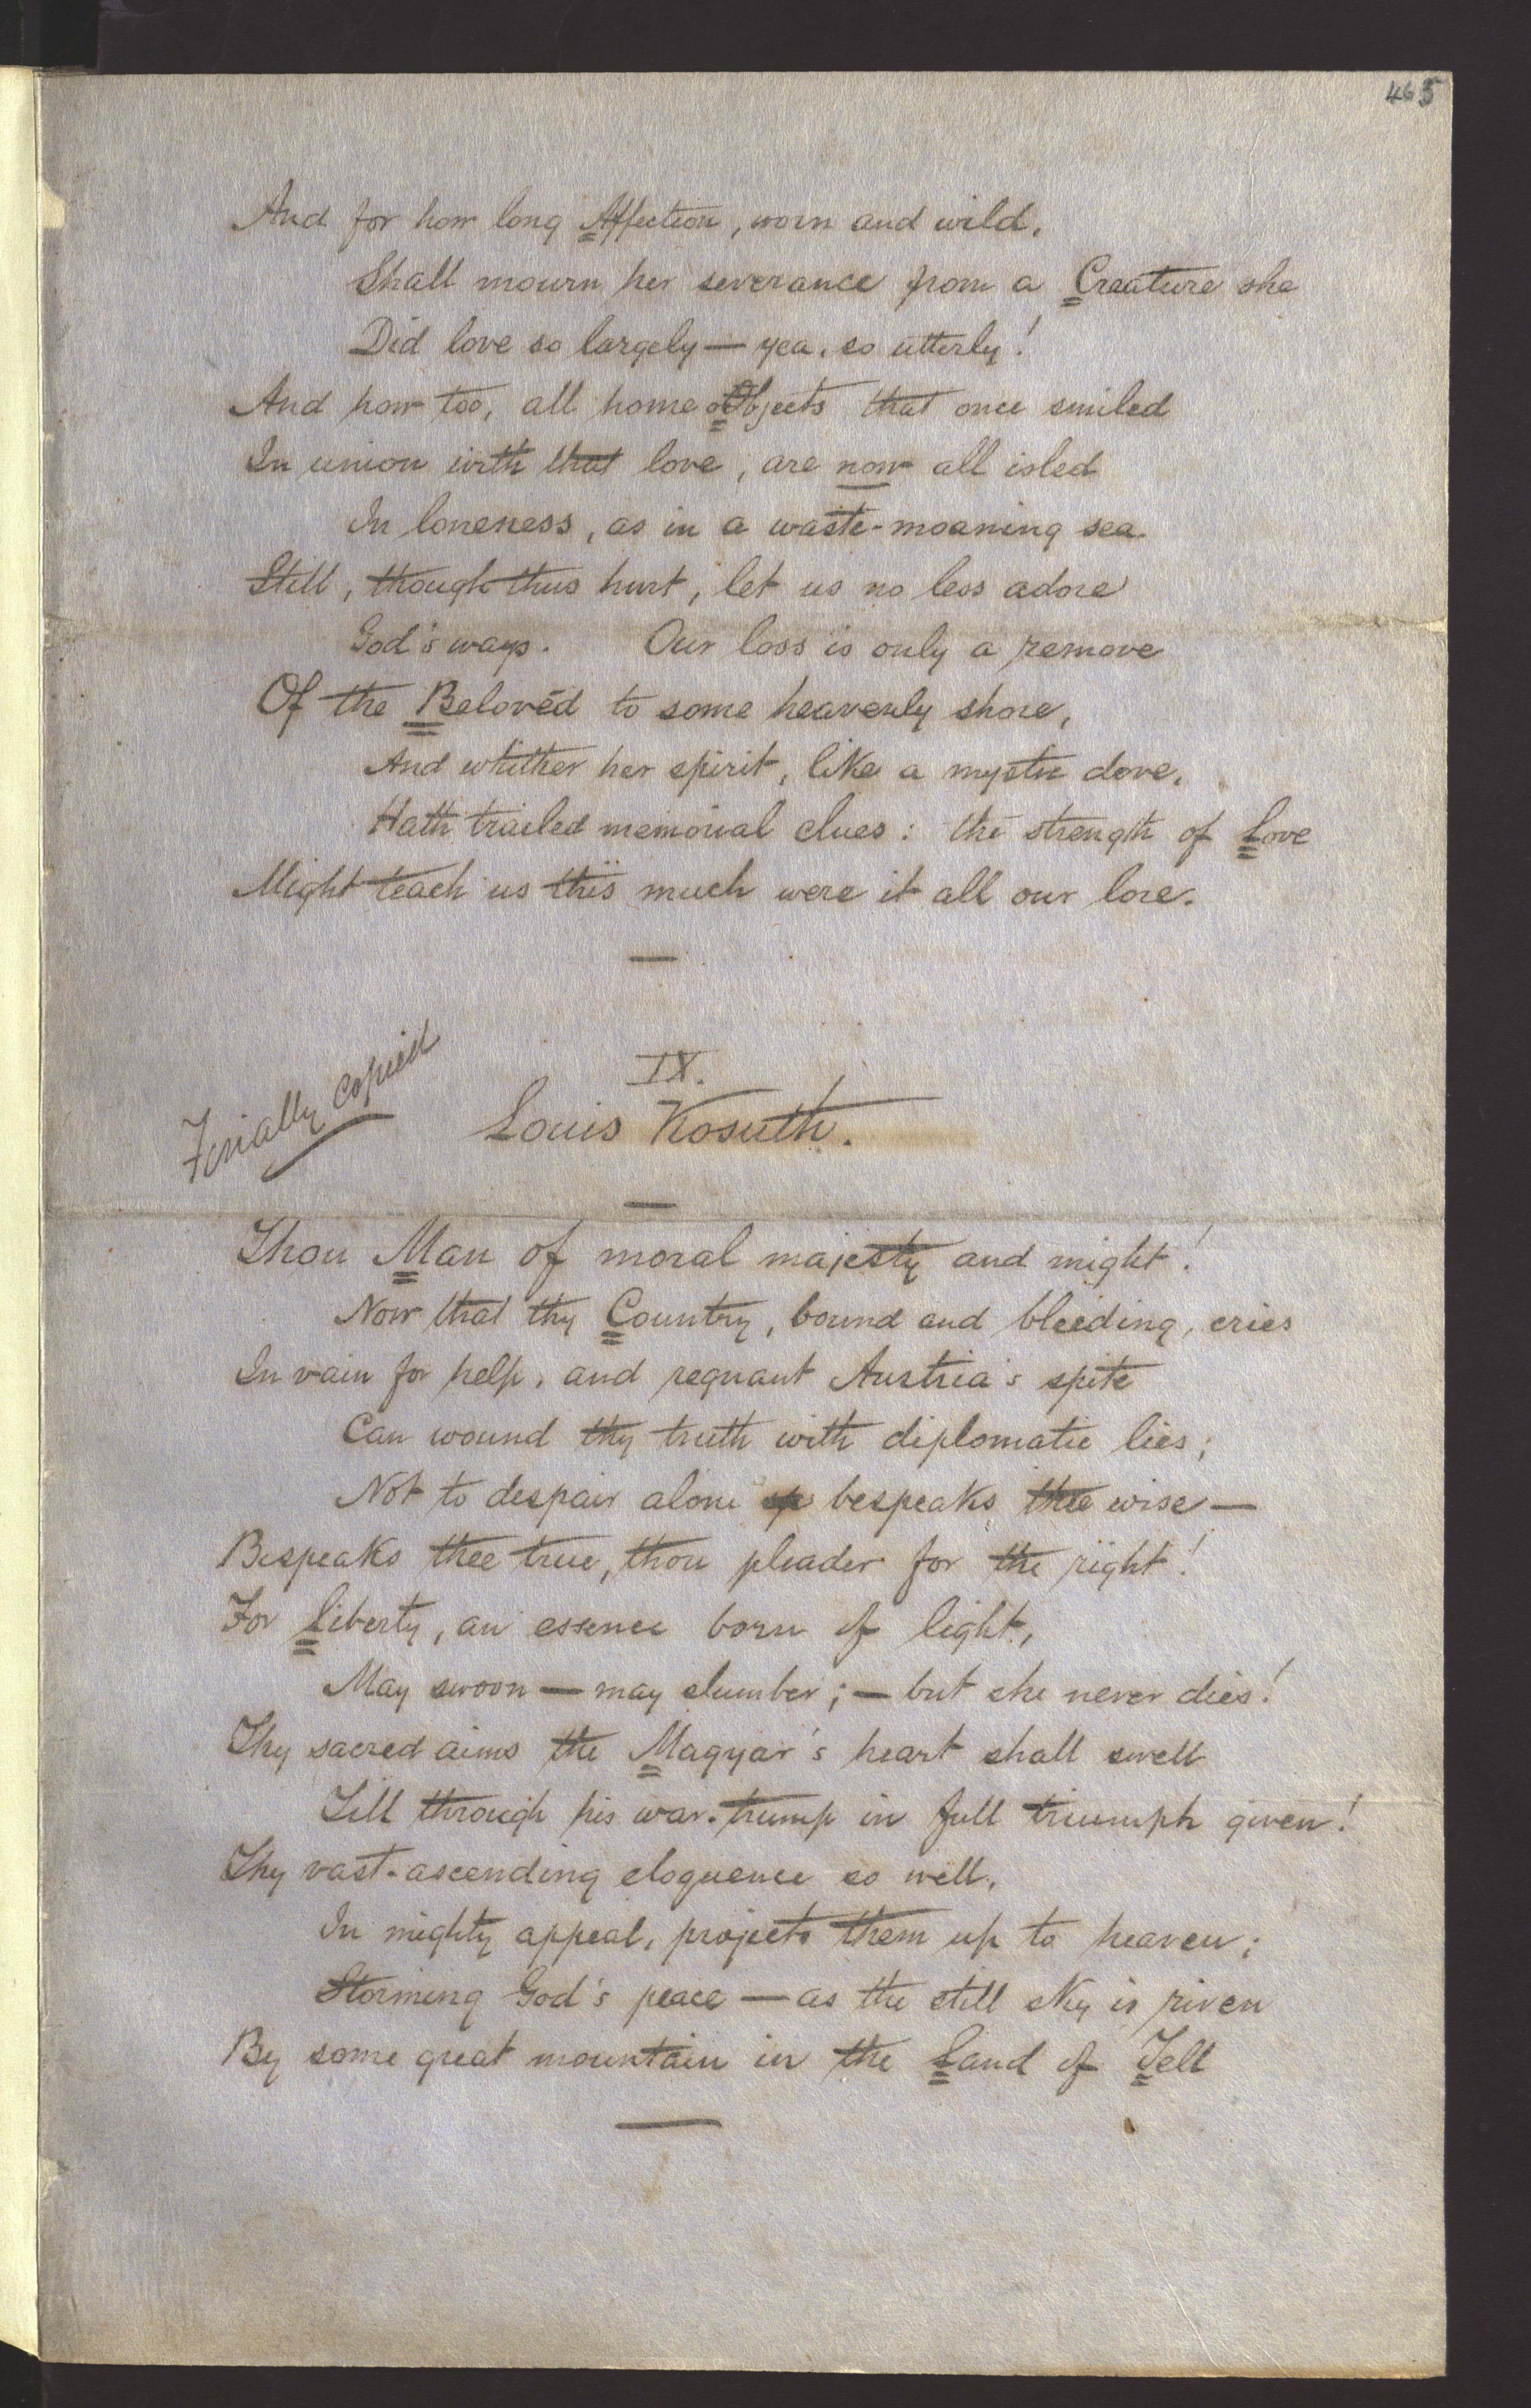 465
And for how long Affection, worn and wild,
Shall mourn her severance from a Creature she
Did love so largely — yea, so utterly!
And how too, all home Objects that once smiled
In union with that love, are now all isled
In loneness, as in a waste-moaning sea.
Still, though thus hurt, let us no less adore
God's ways. Our loss is only a remove
Of the Belovéd to some heavenly shore,
And whither her spirit, like a mystic dove,
Hath trailed memorial clues: the strength of Love
Might teach us this much were it all our lore.
—
Finally copied
IX.
Louis Kosuth.
—
Thou Man of moral majesty and might!
Now that thy Country, bound and bleeding, cries
In vain for help, and regnant Austria's spite
Can wound thy truth with diplomatic lies;
Not to despair alone bespeaks thee wise —
Bespeaks thee true, thou pleader for the right!
For Liberty, an essence born of light,
May swoon — may slumber; — but she never dies!
Thy sacred aims the Magyar's heart shall swell
Till through his war-trump in full triumph given!
Thy vast-ascending eloquence so well,
In mighty appeal, projects them up to heaven;
Storming God's peace — as the still sky is riven
By some great mountain in the Land of Tell
—